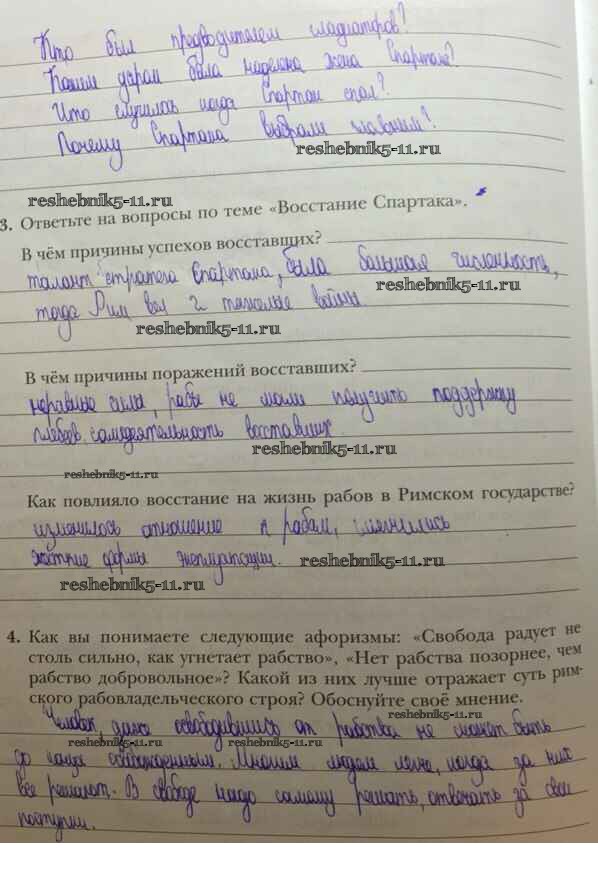 Кто был предводителем гладиаторов?
Каким даром была наделена жена Спартака?
Что случилось когда Спартак спал?
Почему Спартака выбрали главным?
reshebnik5-11.ru
reshebnik5-11.ru
3. Ответьте на вопросы по теме «Восстание Спартака».
В чём причины успехов восставших?
талант стратега Спартака, была большая численность,
тогда Рим вел 2 тяжелые войны
reshebnik5-11.ru
reshebnik5-11.ru
В чём причины поражений восставших?
неравные сила, рабы не могли получить поддержку
плебеев, самодеятельность восставших.
reshebnik5-11.ru
reshebnik5-11.ru
Как повлияло восстание на жизнь рабов в Римском государстве?
изменилось отношение к рабам, смягчились
жесткие формы эксплуатации.
reshebnik5-11.ru
reshebnik5-11.ru
4. Как вы понимаете следующие афоризмы: «Свобода радует не
столь сильно, как угнетает рабство», «Нет рабства позорнее, чем
рабство добровольное»? Какой из них лучше отражает суть рим-
ского рабовладельческого строя? Обоснуйте своё мнение.
reshebnik5-11.ru
Человек, даже освободившись от рабства не может быть
reshebnik5-11.ru
reshebnik5-11.ru
до конца освобожденным. Многим людям легче, когда за них
все решают. В свободе надо самому решать, отвечать за свои
поступки.